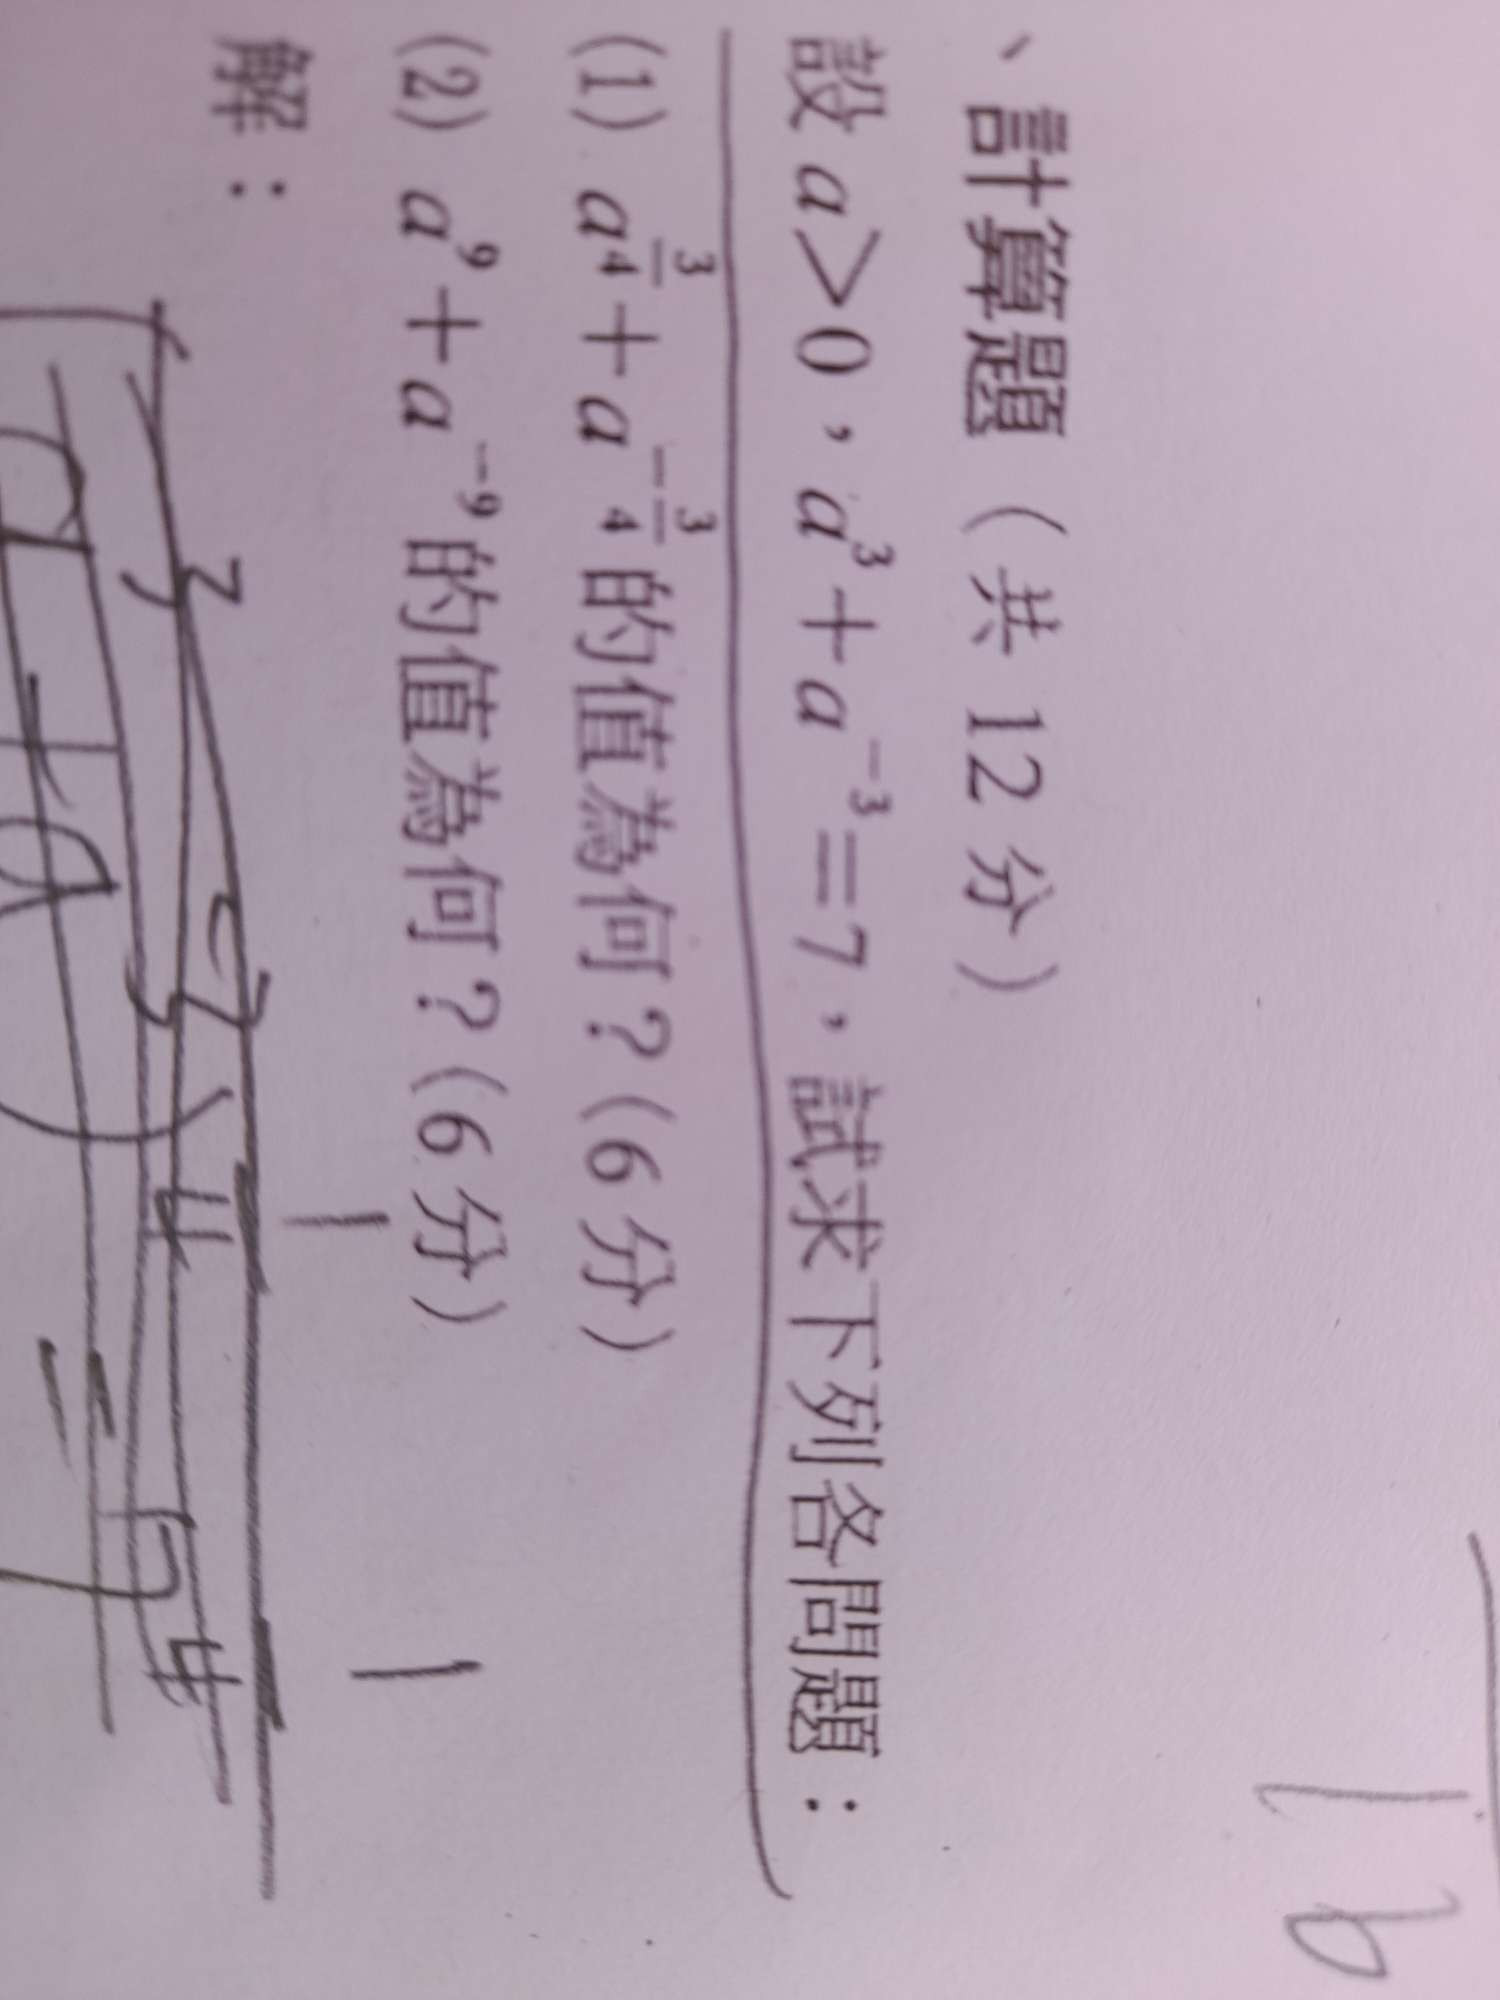 、計算題（共 12 分）
設 a＞0，a³＋a⁻³＝7，試求下列各問題：
(1) a^{3/4}＋a^{-3/4}的值為何？(6 分)
(2) a⁹＋a⁻⁹的值為何？(6 分)
解：